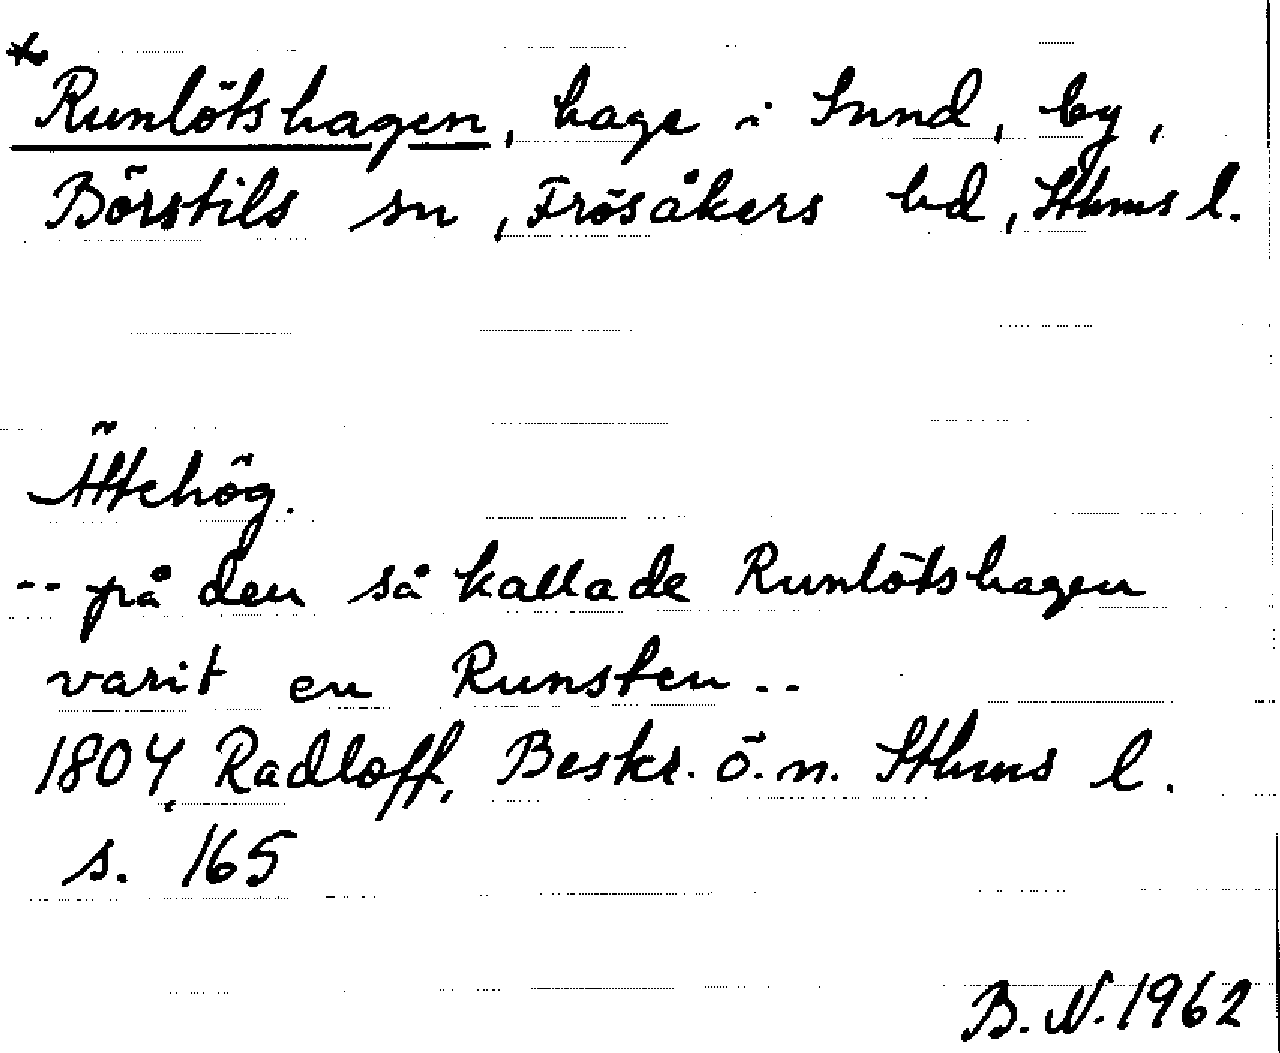 * Runlötshagen, hage i Sund, by,
Börstils sn, Frösåkers hd, Sthms l.
Ättehög.
-- på den så kallade Runlötshagen
varit en Runsten --
1804, Radloff, Beskr. ö. n. Sthms l.
s. 165
B. N. 1962